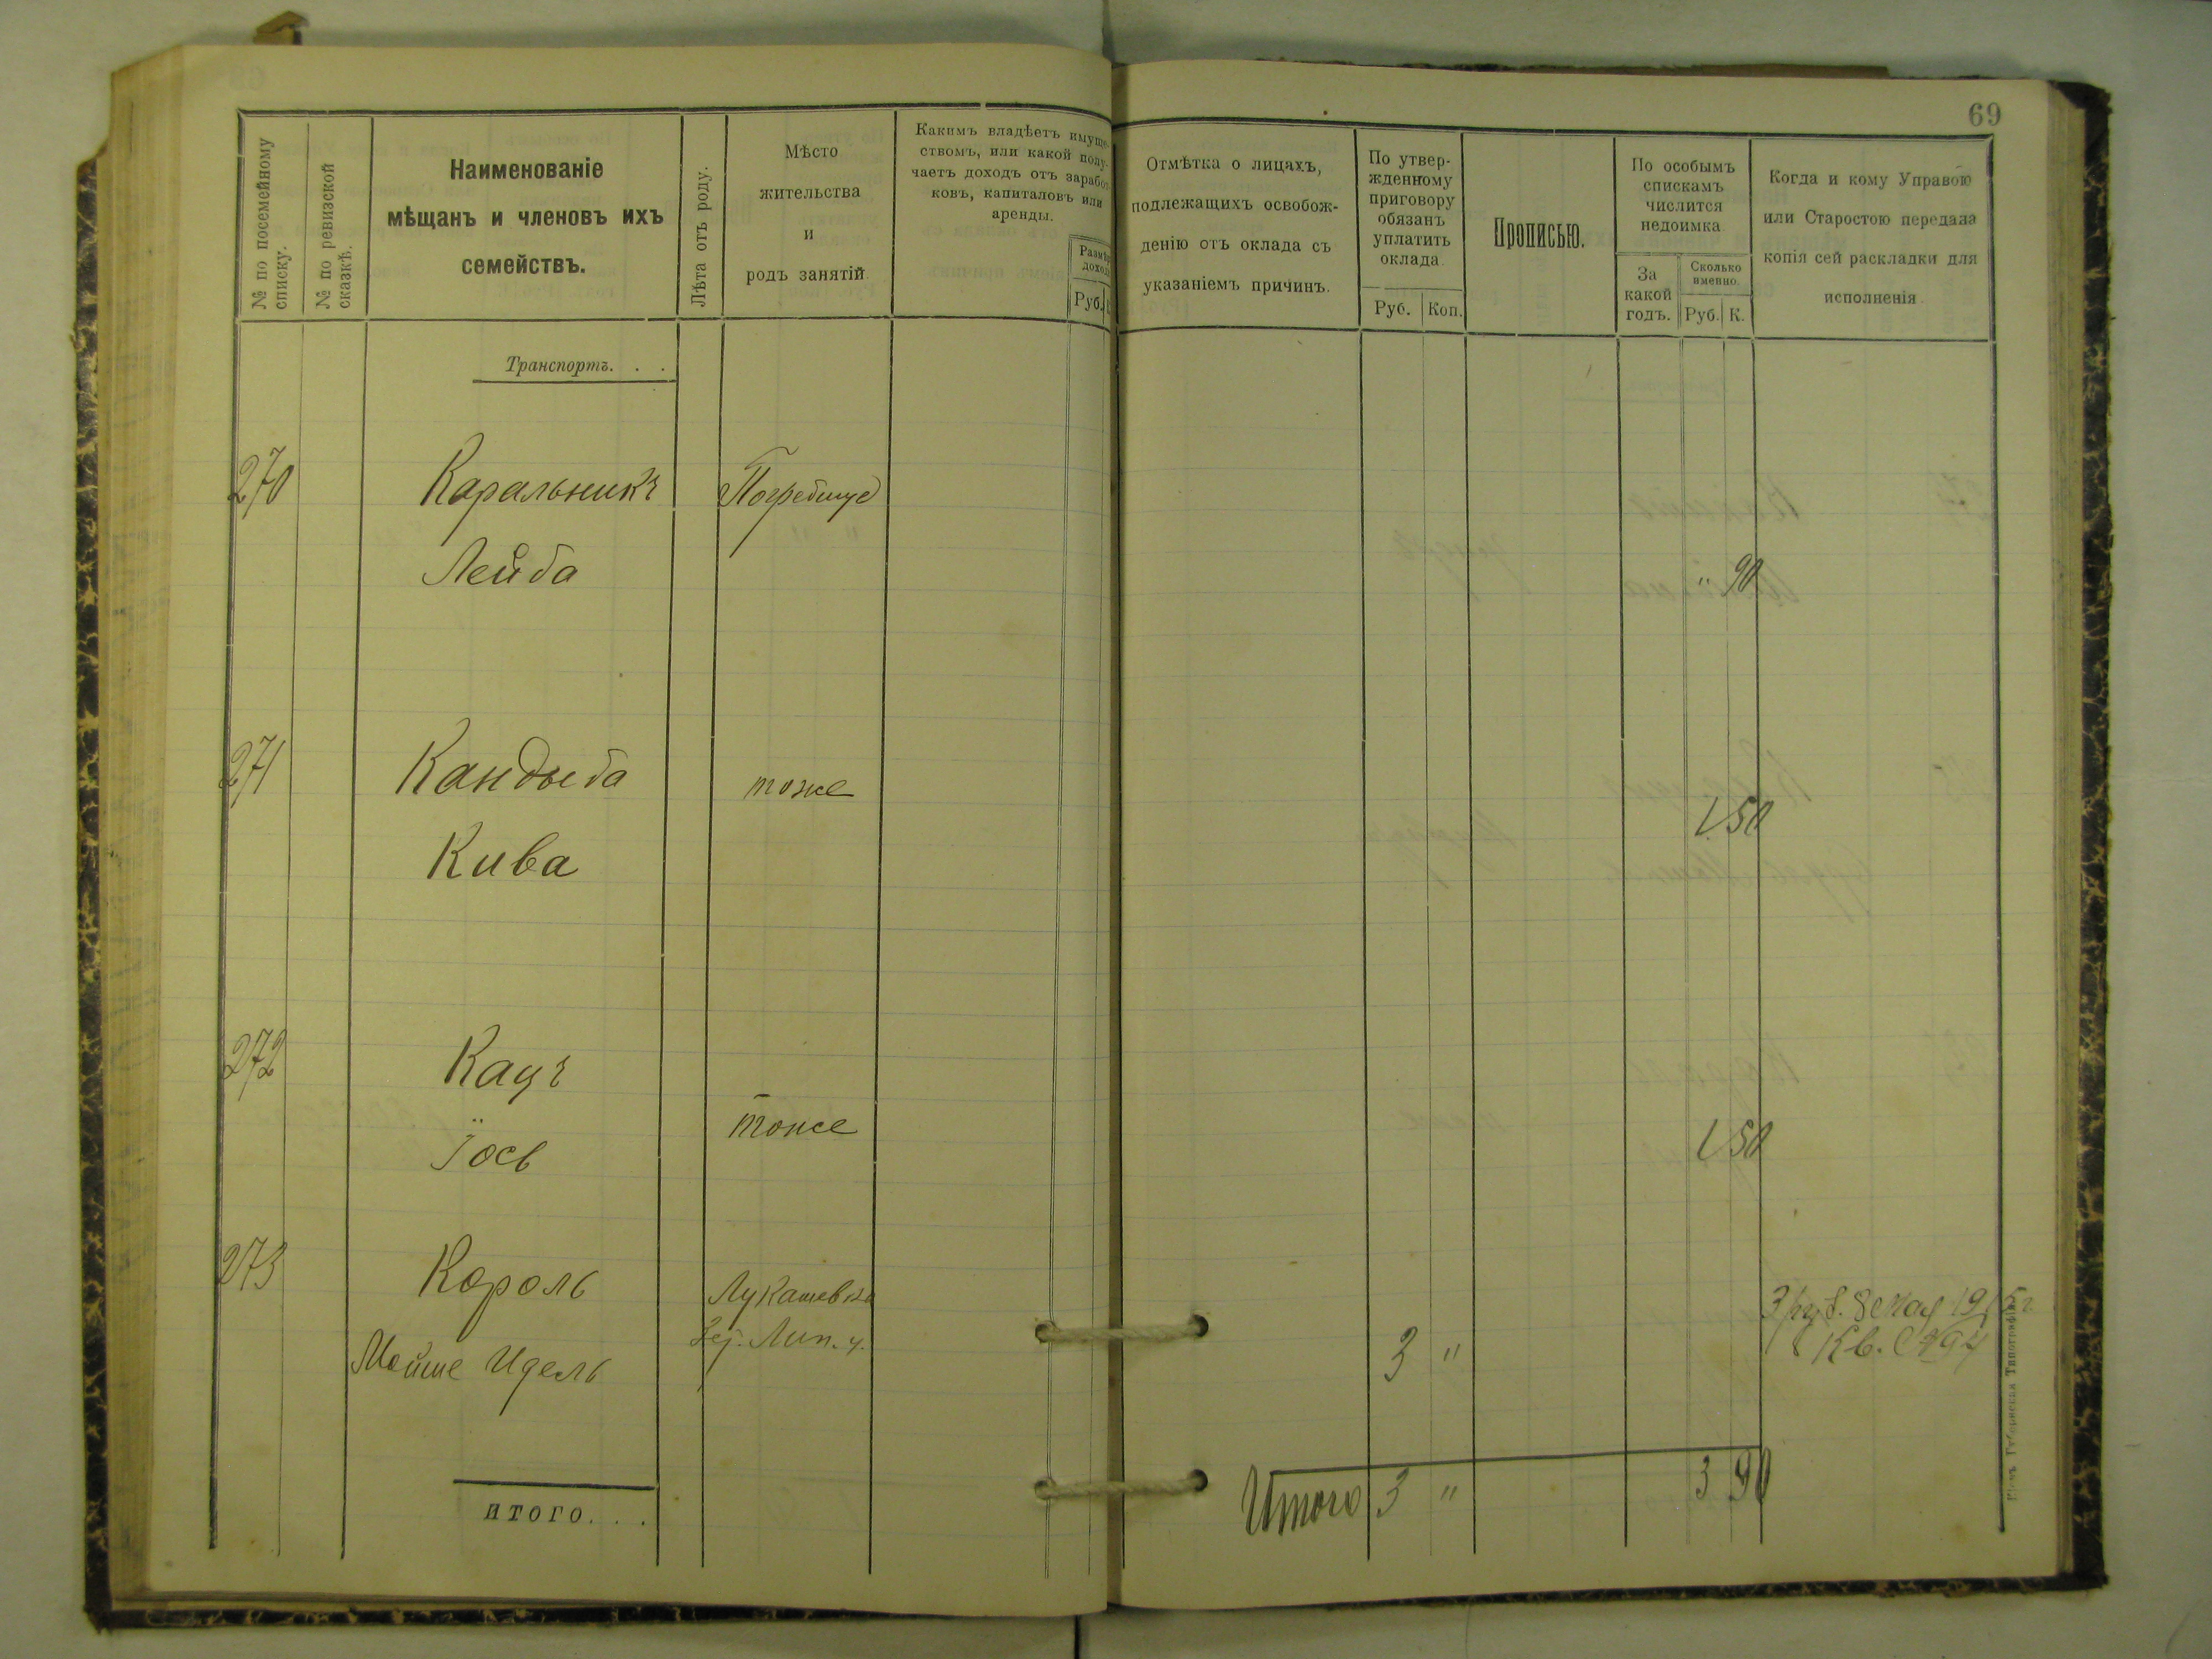 69
№ по посемейному
списку.
№ по ревизской
сказкѣ.
Наименованіе
мѣщанъ и членовъ ихъ
семействъ.
Лѣта отъ роду.
Мѣсто
жительства
и
родъ занятій
Какимъ владѣетъ имуще-
ствомъ, или какой полу-
чаетъ доходъ отъ заработ-
ковъ, капиталовъ или
аренды.
Размѣръ
дохода
Руб.
Отмѣтка о лицахъ,
подлежащихъ освобож-
денію отъ оклада съ
указаніемъ причинъ.
По утвер-
жденному
приговору
обязанъ
уплатить
оклада
Руб. Коп.
Прописью.
По особымъ
спискамъ
числится
недоимка
За
какой
годъ.
Сколько
именно.
Руб. К.
Когда и кому Управою
или Старостою передана
копія сей раскладки для
исполненія
Транспортъ. . .
270 Каральникъ
Лейба " 90
271 Кандыба тоже
1 50
Кива
272 Кацъ
тоже 1 50
Іось
273 Король Лукашевка
3 руб. 8 мая 1915 г.
Мойше Идель 3 "
Кв.
Итого 3 " 3 90
итого. . .
Губернская Типографія